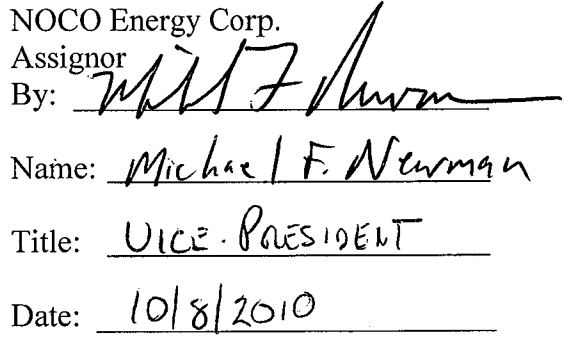 NOCO Energy Corp.
Assignor
By: Michael F Newman
Name: Michael F. Newman
Title: VICE. PRESIDENT
Date: 10/8/2010